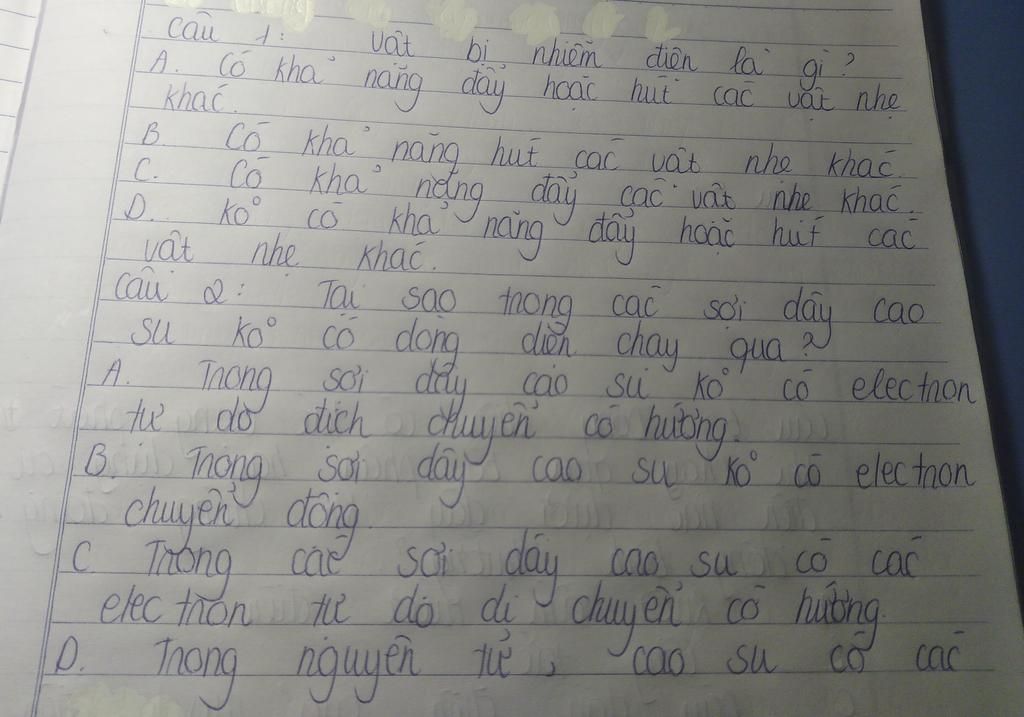 Câu 1: Vật bị nhiễm điện là gì?
A. Có khả năng đẩy hoặc hút các vật nhẹ
khác.
B. Có khả năng hút các vật nhẹ khác.
C. Có khả năng đẩy các vật nhẹ khác.
D. Ko có khả năng đẩy hoặc hút các
vật nhẹ khác.
Câu 2: Tại sao trong các sợi dây cao
su ko có dòng điện chạy qua?
A. Trong sợi dây cao su ko có electron
tự do dịch chuyển có hướng.
B. Trong sợi dây cao su ko có electron
chuyển động.
C Trong các sợi dây cao su có các
electron tự do di chuyển có hướng.
D. Trong nguyên tử, cao su có các